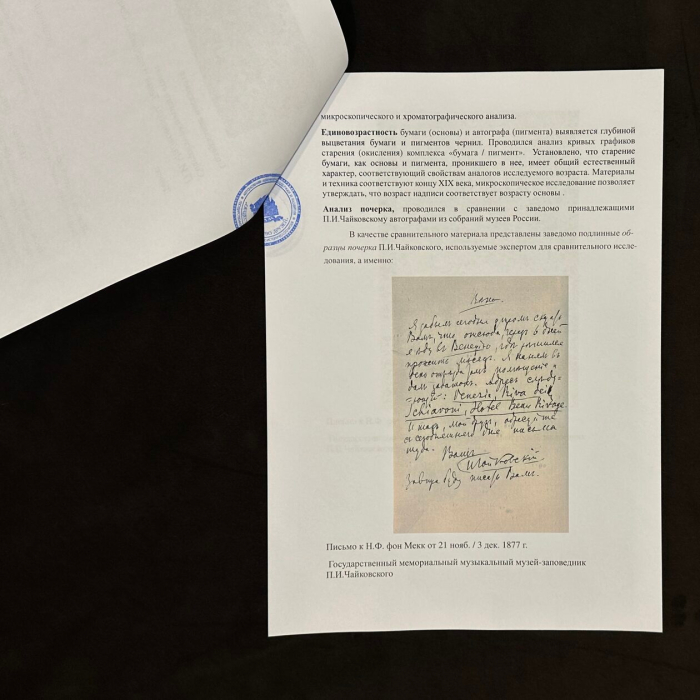 микроскопического и хроматографического анализа.
Единовозрастность бумаги (основы) и автографа (пигмента) выявляется глубиной
выцветания бумаги и пигментов чернил. Проводился анализ кривых графиков
старения (окисления) комплекса «бумага / пигмент». Установлено, что старение
бумаги, как основы и пигмента, проникшего в нее, имеет общий естественный
характер, соответствующий свойствам аналогов исследуемого возраста. Материалы
и техника соответствуют концу XIX века, микроскопическое исследование позволяет
утверждать, что возраст надписи соответствует возрасту основы .
Анализ почерка, проводился в сравнении с заведомо принадлежащими
П.И.Чайковскому автографами из собраний музеев России.
В качестве сравнительного материала представлены заведомо подлинные об-
разцы почерка П.И.Чайковского, используемые экспертом для сравнительного иссле-
дования, а именно:
Я забыл сегодня утром сказать
Вам, что отсюда через
я еду в Венецию, где
Я
адрес следу-
ющий: Venezia, Riva dei
Schiavoni, Hotel Beau Rivage.
письма
туда. Ваш
П Чайковский.
Завтра буду писать Вам.
Письмо к Н.Ф. фон Мекк от 21 нояб. / 3 дек. 1877 г.
Государственный мемориальный музыкальный музей-заповедник
П.И.Чайковского